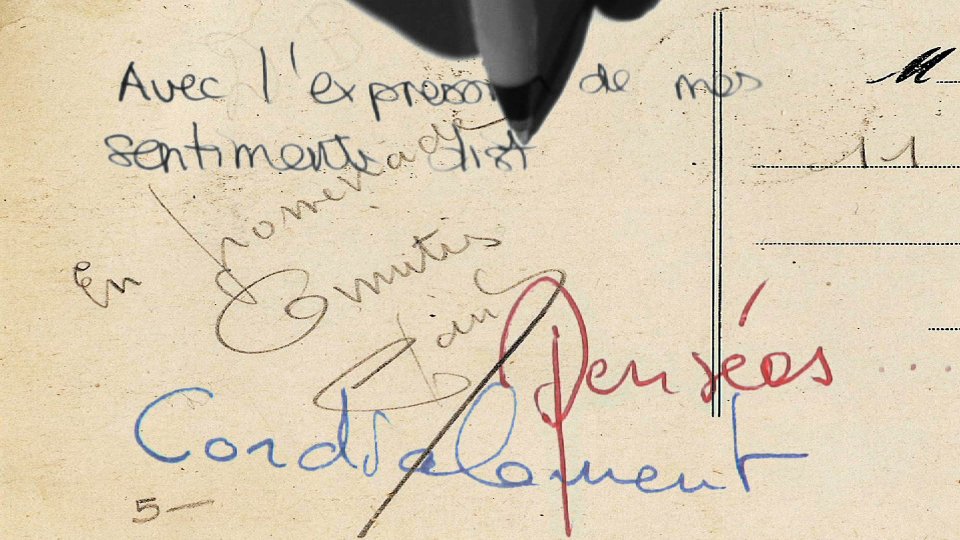 Avec l'expression de mes
M
sentiments dist
11
En promenade
Amitiés
Pensées...
Cordialement
5-